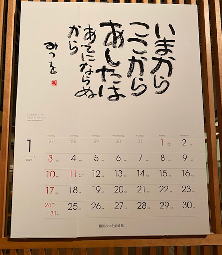 いまから
ここから
あしたは
あてにならぬ
から
みつを
1
1 2
3 4 5 6 7 8 9
10 11 12 13 14 15 16
17 18 19 20 21 22 23
24 25 26 27 28 29 30
31